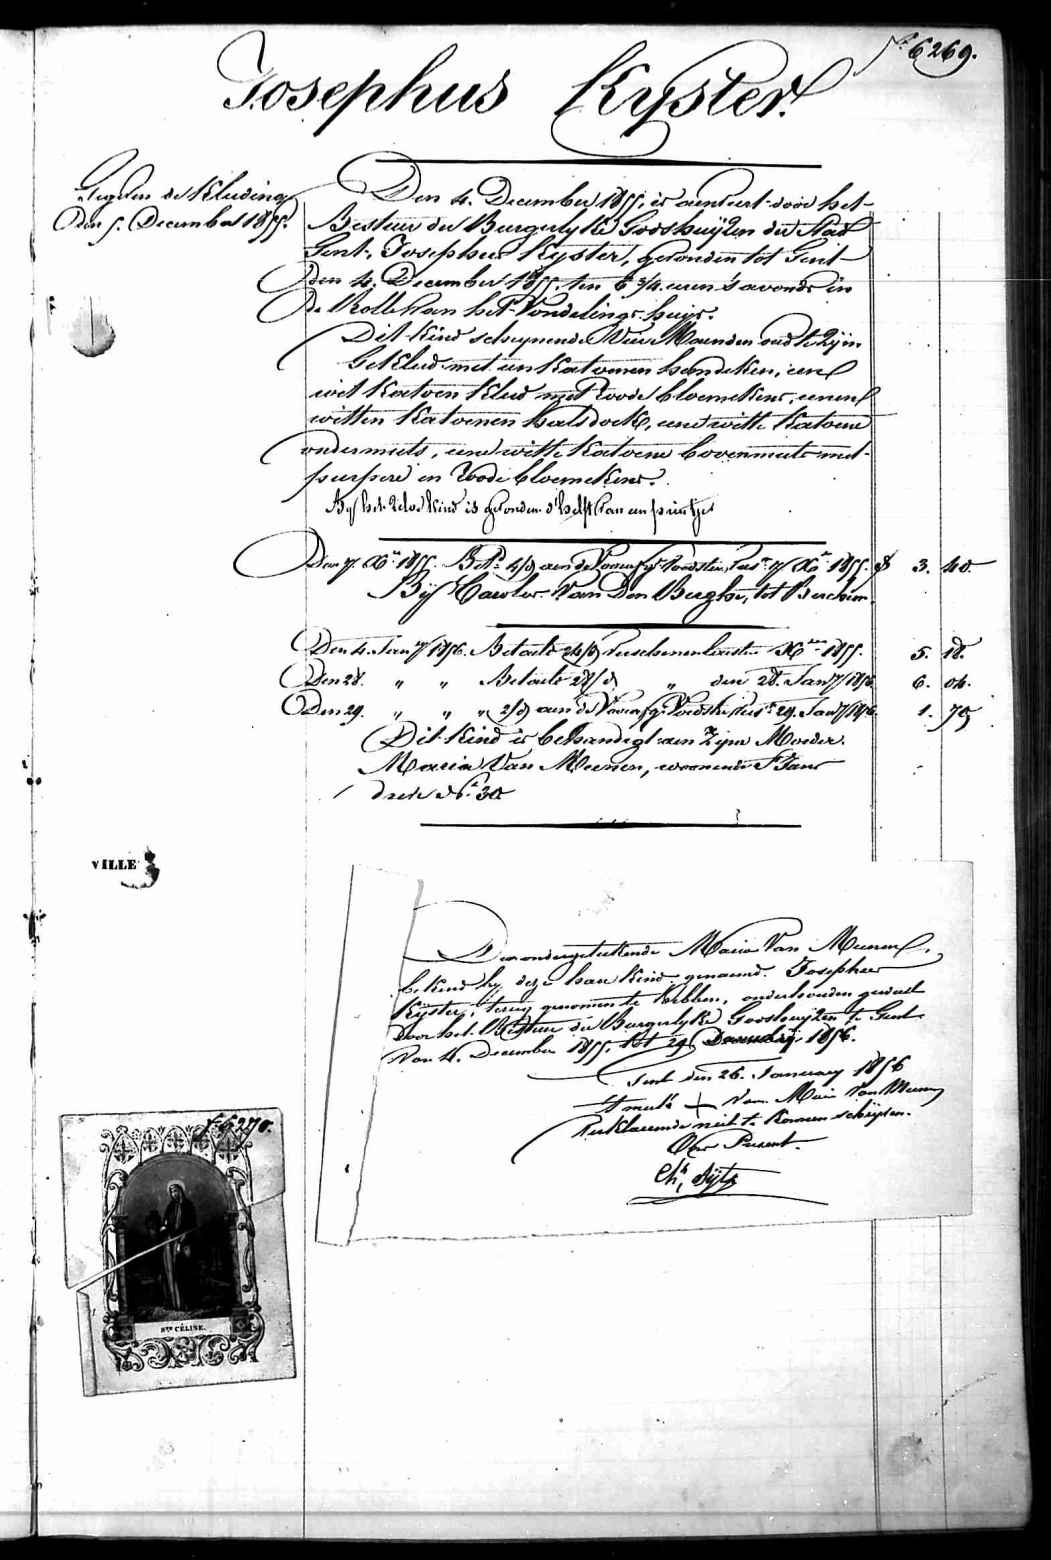 N.º 6269.
Josephus Kyster.
Gegeven de Kleeding
Den 5. December 1855.
Den 4. December 1855. is aenveert door het
Bestuur der Burgerlyke Godshuyzen der Stad
Gent, Josephus Kyster, gevonden tot Gent
den 4. December 1855. ten 6 3/4. uren 's avonds in
de Rolle van het Vondelings-huys.
Dit Kind schynende Vier Maenden oud te Zyn
Gekleed met een Katoenen hemdeken, een
wit Katoen Kleed met Roode bloemekens, eenen
witten Katoenen halsdoek, eene witte Katoene
ondermuts, eene witte Katoene bovenmuts met
purpere en Roode bloemekens.
By het zelve Kind is gevonden d'helft van een printje
Den 7. Xber 1855. Betd. aen de Voedster 7 Xber 1855. 3. 40
Bij Carolus Van Den Berghe, tot Berchem.
Den 4. Jany 1856. Betaelt Xber 1855. 5. 18.
Den 28. " " Betaelt " den 28. Jany 1856 6. 04.
Den 29. " " " aen de Voedster 29. Jany 1856. 1. 79
Dit Kind is behandigt aen Zyne Moeder.
Maria Van Meenen, woonende St Jans
dreve No. 30
VILLE
De ondergeteekende Maria Van Meenen,
bekend by deze haer Kind genaemd Josephus
Kyster, terug genomen te hebben, onderhouden geweest
door het Bestuur der Burgerlyke Godshuyzen te Gent
Van 4. December 1855, tot 29 January 1856.
Gent den 26. January 1856
't merk + Van Marie Van Meenen
Verklaerende niet te konnen schryven.
Ons Present.
Ch.
Nº 6270.
STE CÉLISE.